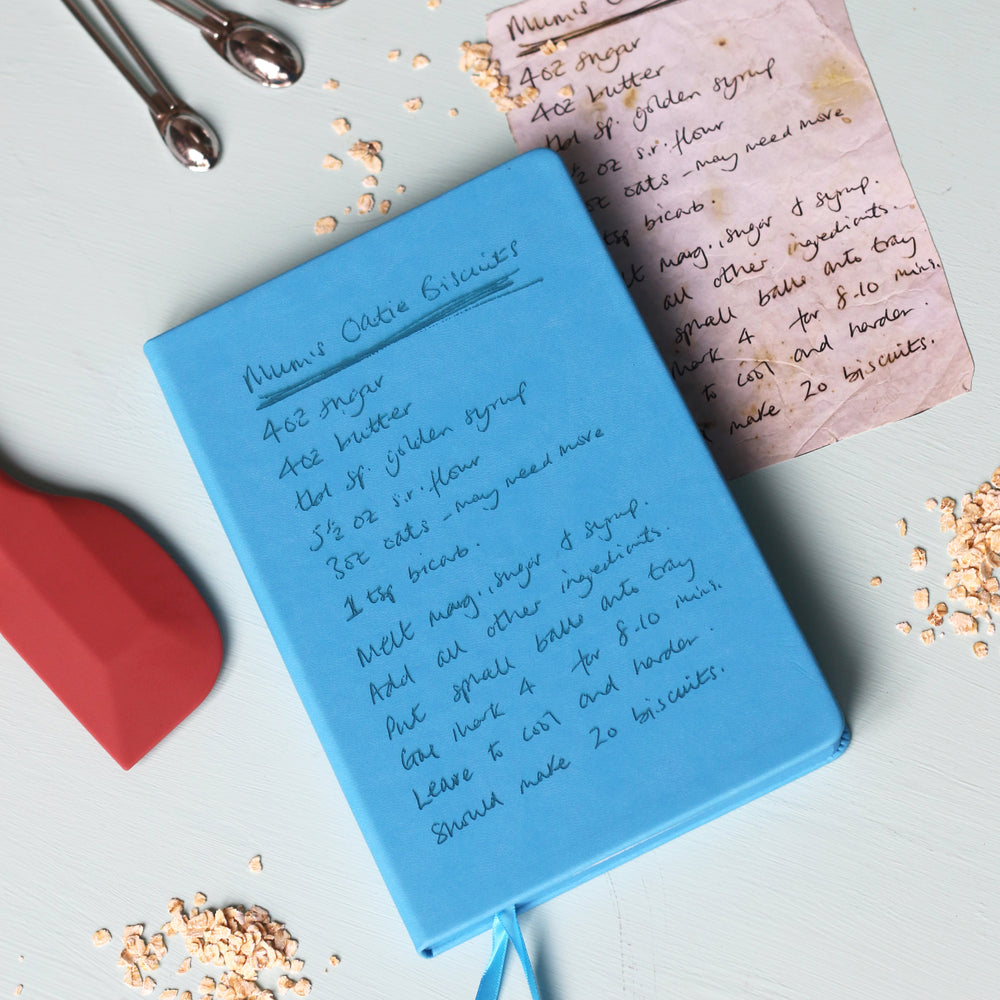 Mum's Oatie Biscuits
4oz sugar
4oz butter
tbl sp. golden syrup
5 1/2 oz s.r. flour
3oz oats - may need more
1 tsp bicarb.
Melt marg., sugar & syrup.
Add all other ingredients.
Put small balls onto tray
Gas Mark 4 for 8-10 mins.
Leave to cool and harden.
Should make 20 biscuits.
Mum's
4oz sugar
4oz butter
tbl sp. golden syrup
1/2 oz s.r. flour
oz oats - may need more
tsp bicarb.
lt marg., sugar & syrup.
all other ingredients.
small balls onto tray
Mark 4 for 8-10 mins.
to cool and harden
make 20 biscuits.